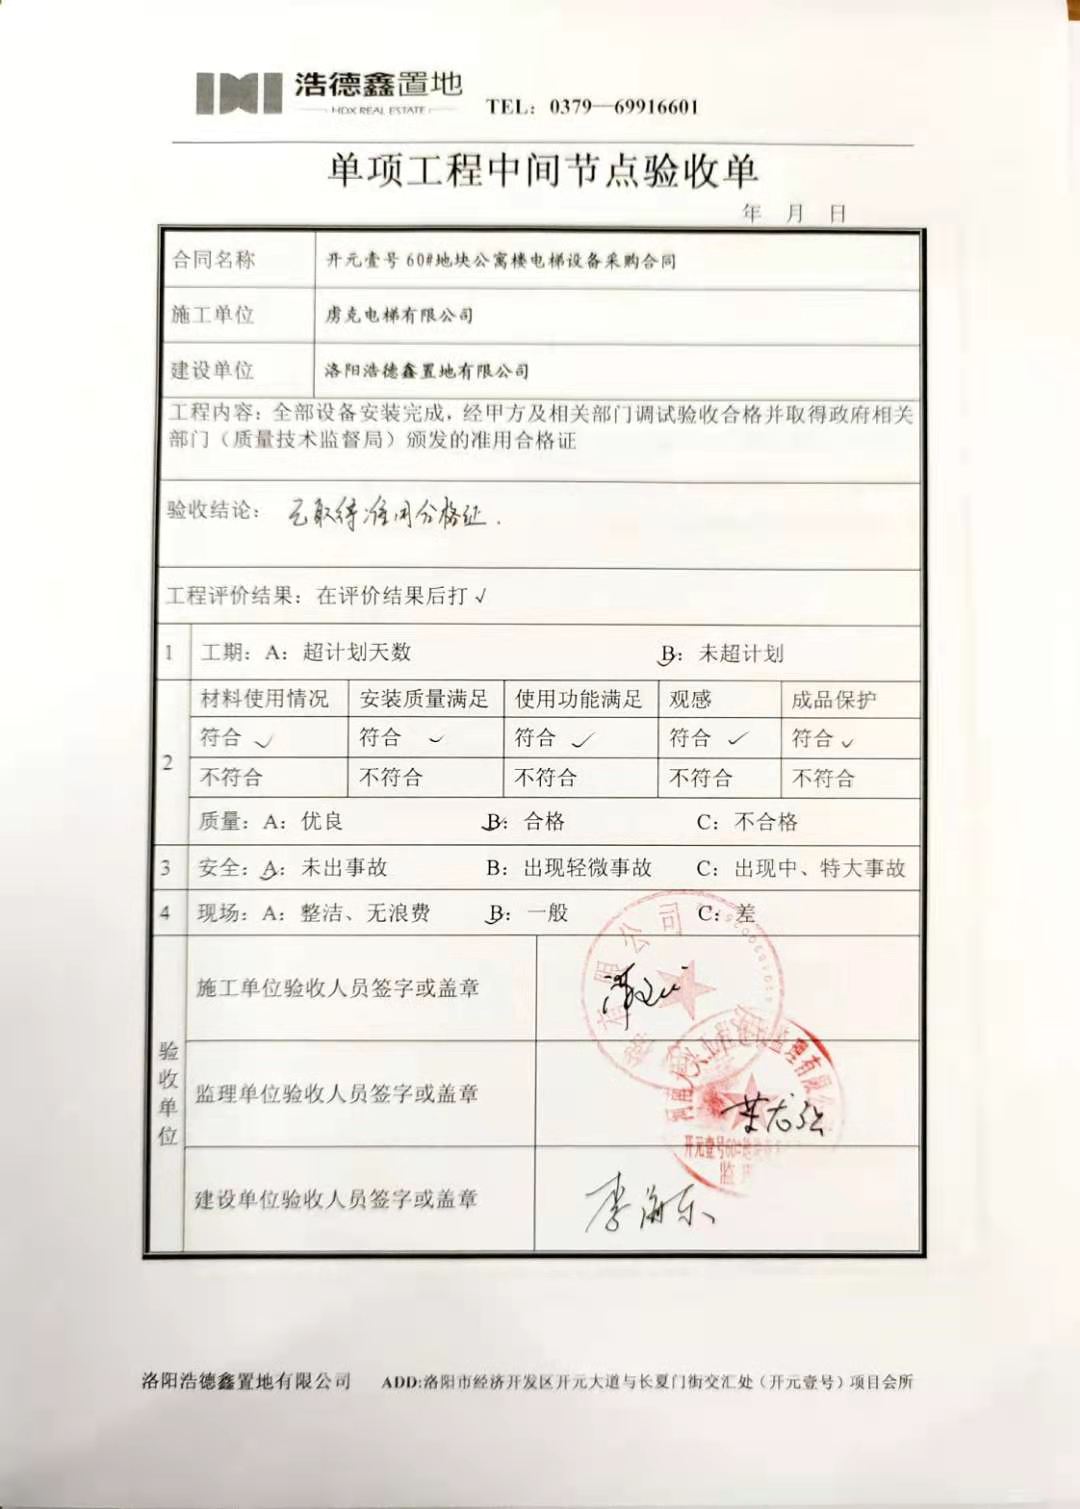 浩德鑫置地
HDX REAL ESTATE
TEL：0379—69916601
单项工程中间节点验收单
年 月 日
合同名称 开元壹号60#地块公寓楼电梯设备采购合同
施工单位 虏克电梯有限公司
建设单位 洛阳浩德鑫置地有限公司
工程内容：全部设备安装完成，经甲方及相关部门调试验收合格并取得政府相关
部门（质量技术监督局）颁发的准用合格证
验收结论：已取得准用合格证.
工程评价结果：在评价结果后打√
1 工期：A：超计划天数 B：未超计划
材料使用情况 安装质量满足 使用功能满足 观感 成品保护
符合 ✓ 符合 ✓ 符合 ✓ 符合 ✓ 符合 ✓
2
不符合 不符合 不符合 不符合 不符合
质量：A：优良 B：合格 C：不合格
3 安全：A：未出事故 B：出现轻微事故 C：出现中、特大事故
4 现场：A：整洁、无浪费 B：一般 C：差
验收单位
施工单位验收人员签字或盖章
监理单位验收人员签字或盖章
建设单位验收人员签字或盖章 李海东
洛阳浩德鑫置地有限公司 ADD:洛阳市经济开发区开元大道与长夏门街交汇处（开元壹号）项目会所